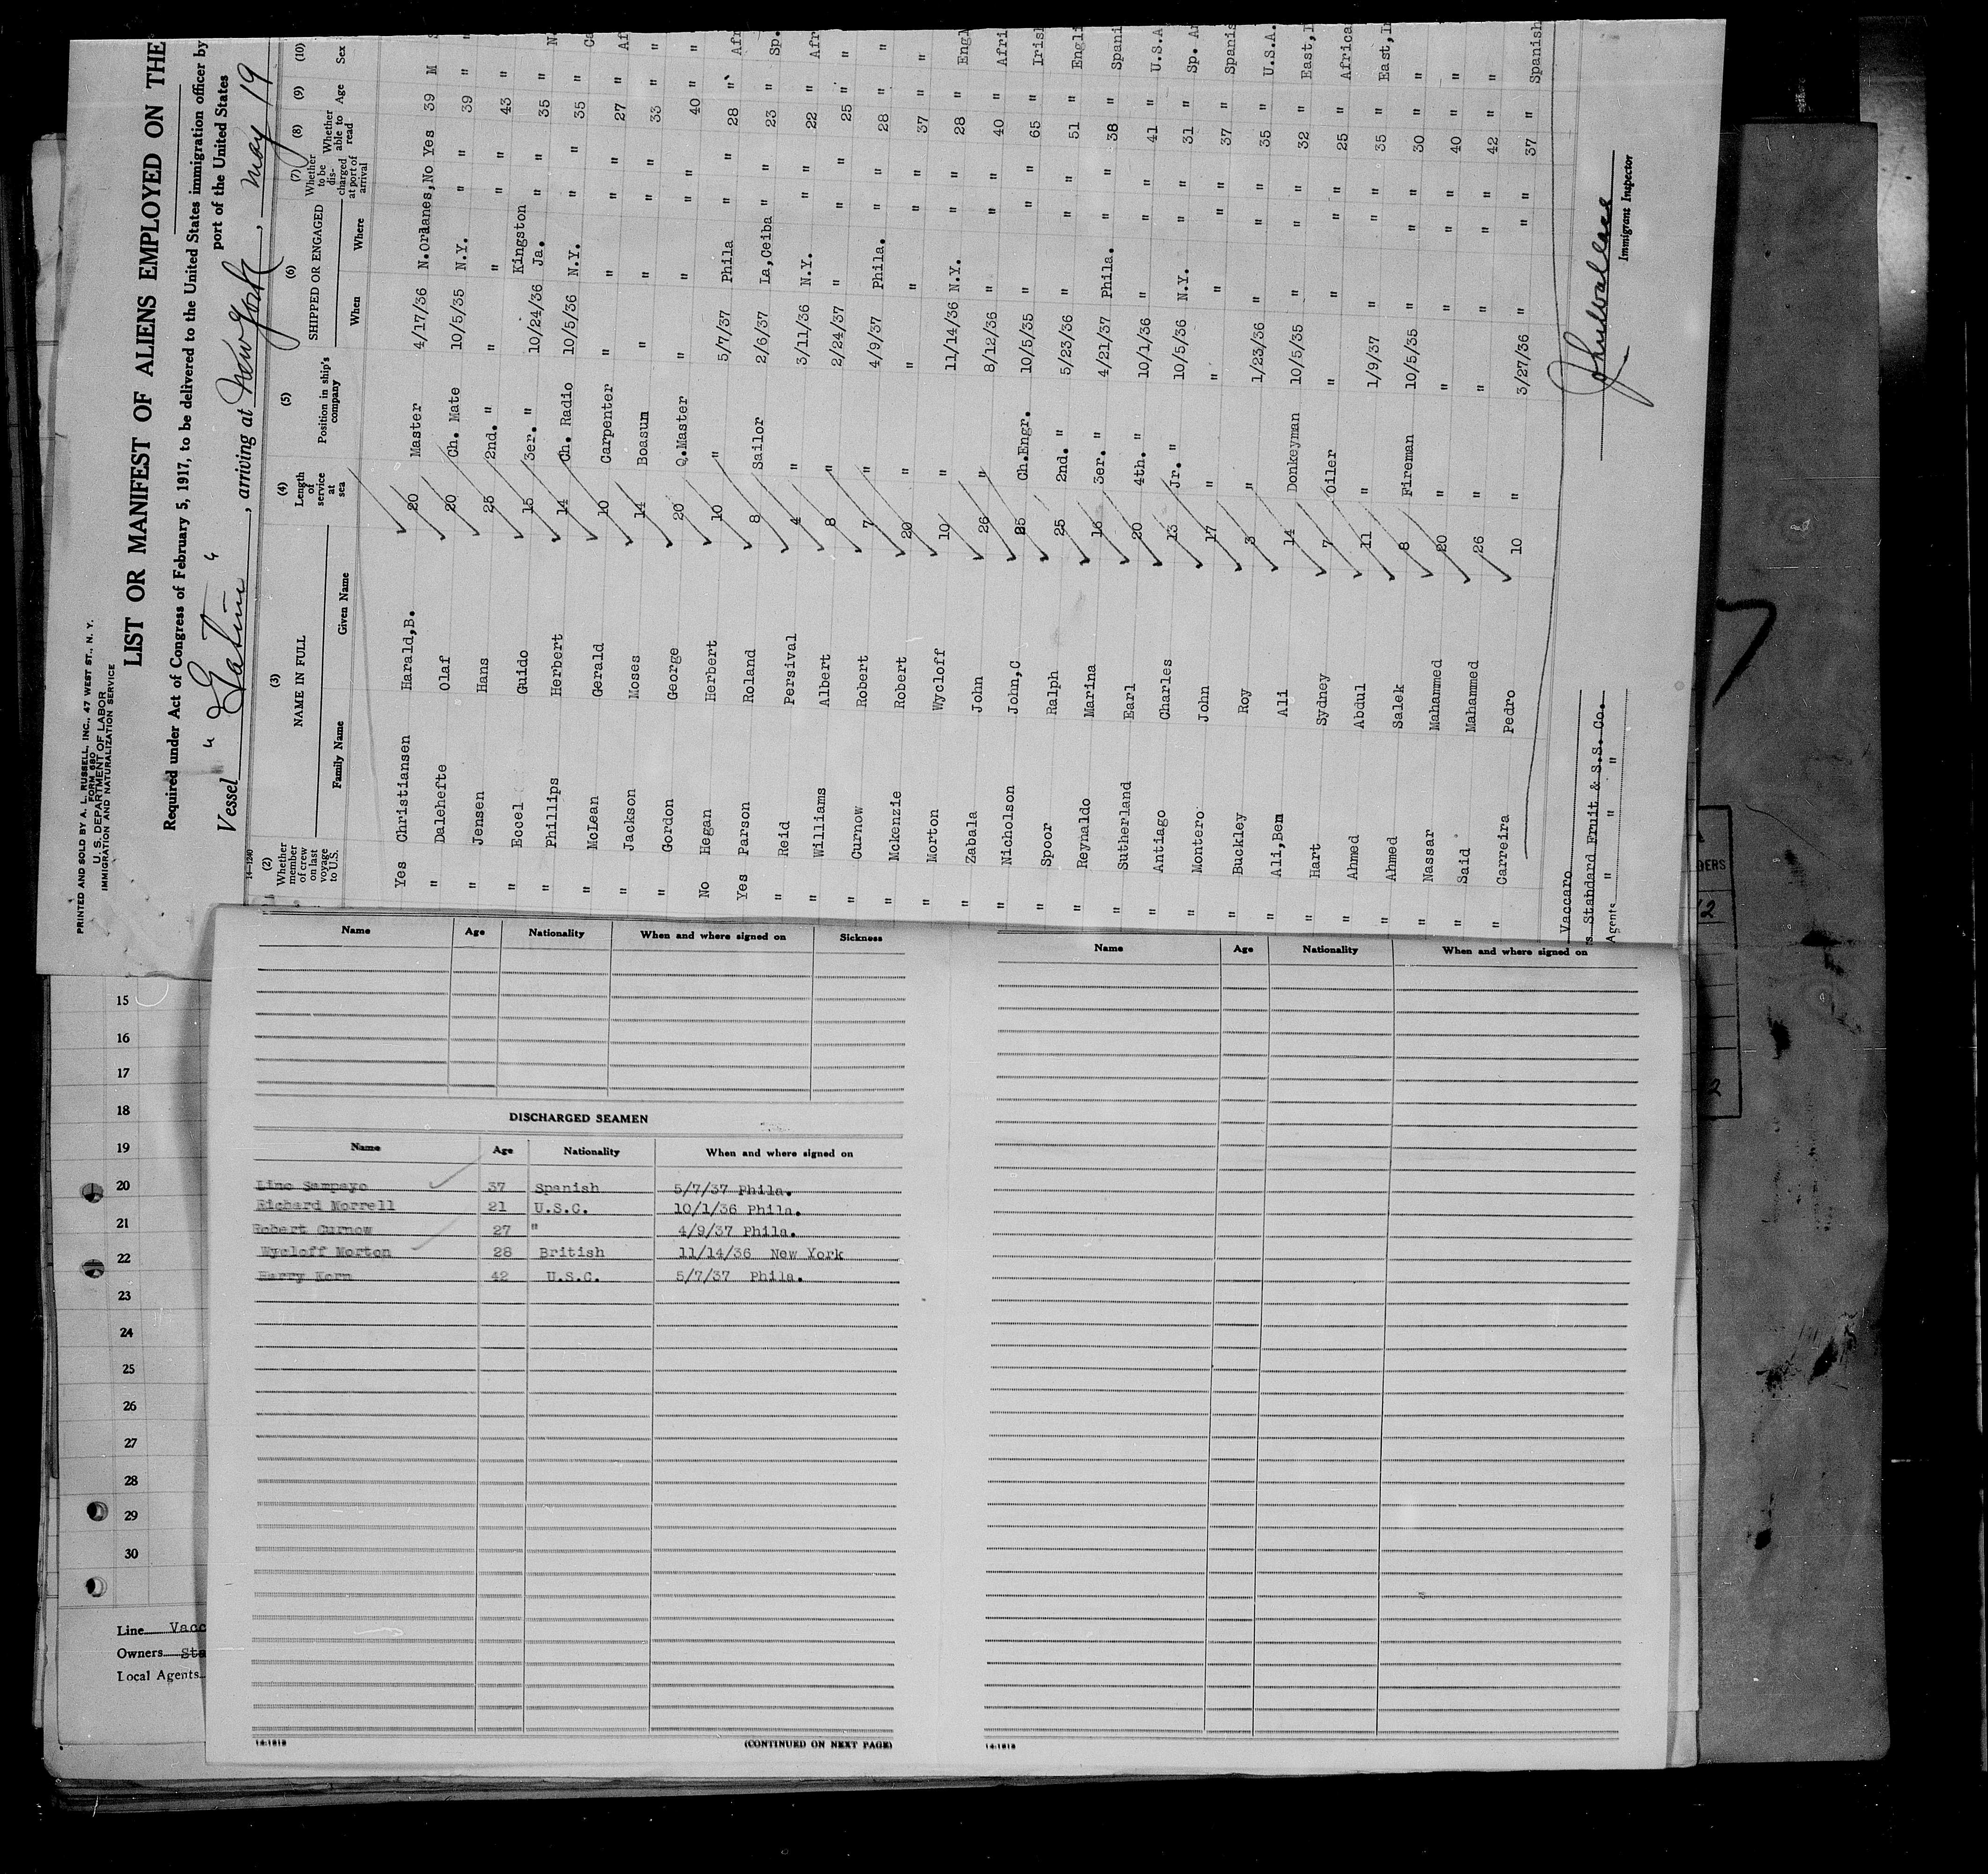 PRINTED AND SOLD BY A. L. RUSSELL, INC., 47 WEST ST., N. Y.
FORM 680
U. S. DEPARTMENT OF LABOR
IMMIGRATION AND NATURALIZATION SERVICE
LIST OR MANIFEST OF ALIENS EMPLOYED ON THE
Required under Act of Congress of February 5, 1917, to be delivered to the United States immigration officer by
port of the United States
Vessel " Gatun ", arriving at New York, May 19
14—1240
(2) Whether member of crew on last voyage to U.S. (3) NAME IN FULL Family Name Given Name (4) Length of service at sea (5) Position in ship's company (6) SHIPPED OR ENGAGED When Where (7) Whether to be discharged at port of arrival (8) Whether able to read (9) Age (10) Sex
Yes Christiansen Harald,B. 20 Master 4/17/36 N.Orlanes,No Yes 39 M
" Dalehefte Olaf 20 Ch. Mate 10/5/35 N.Y. " " 39 "
" Jensen Hans 25 2nd. " " " " " 43 "
" Eccel Guido 15 3er. " 10/24/36 Kingston Ja. " " 35 " N.
" Phillips Herbert 14 Ch. Radio 10/5/36 N.Y. " " 35 " Ca
" McLean Gerald 10 Carpenter " " " " 27 " Af
" Jackson Moses 14 Boasun " " " " 33 " "
" Gordon George 20 Q.Master " " " " 40 " "
No Hegan Herbert 10 " 5/7/37 Phila " " 28 " Afr
Yes Parson Roland 8 Sailor 2/6/37 La,Ceiba " " 23 " Sp.
" Reid Persival 4 " 3/11/36 N.Y. " " 22 " Afr
" Williams Albert 8 " 2/24/37 " " " 25 " "
" Curnow Robert 7 " 4/9/37 Phila. " " 28 " "
" Mckenzie Robert 20 " " " " " 37 " "
" Morton Wycloff 10 " 11/14/36 N.Y. " " 28 " Engl
" Zabala John 26 " 8/12/36 " " " 40 " Afri
" Nicholson John,C 25 Ch.Engr. 10/5/35 " " " 65 " Irish
" Spoor Ralph 25 2nd. " 5/23/36 " " " 51 " Engli
" Reynaldo Marina 16 3er. " 4/21/37 Phila. " " 38 " Spani
" Sutherland Earl 20 4th. " 10/1/36 " " " 41 " U.S.A
" Antiago Charles 13 Jr. " 10/5/36 N.Y. " " 31 " Sp. A
" Montero John 17 " " " " " 37 " Spanis
" Buckley Roy 3 " 1/23/36 " " " 35 " U.S.A.
" Ali,Ben Ali 14 Donkeyman 10/5/35 " " " 32 " East,I
" Hart Sydney 7 Oiler " " " " 25 " Africa
" Ahmed Abdul 11 " 1/9/37 " " " 35 " East,I
" Ahmed Salek 8 Fireman 10/5/35 " " " 30 " "
" Nassar Mahammed 20 " " " " " 40 " "
" Said Mahammed 26 " " " " " 42 " "
" Carreira Pedro 10 " 3/27/36 " " " 37 " Spanish
Vaccaro
s Stahdard Fruit & S.S. Co.
Agents " " "
Immigrant Inspector
Name Age Nationality When and where signed on Sickness
Name Age Nationality When and where signed on
DISCHARGED SEAMEN
Name Age Nationality When and where signed on
Lino Sampayo 37 Spanish 5/7/37 Phila.
Richard Morrell 21 U.S.C. 10/1/36 Phila.
Robert Curnow 27 " 4/9/37 Phila.
Wycloff Morton 28 British 11/14/36 New York
Harry Korn 42 U.S.C. 5/7/37 Phila.
14-1918
(CONTINUED ON NEXT PAGE)
14-1918
15
16
17
18
19
20
21
22
23
24
25
26
27
28
29
30
Line Vacc
Owners Sta
Local Agents
DERS
2
2
7